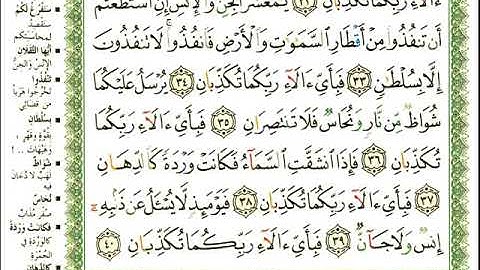 ءَالَآءِ رَبِّكُمَا تُكَذِّبَانِ ٣٢ يَٰمَعْشَرَ ٱلْجِنِّ وَٱلْإِنسِ إِنِ ٱسْتَطَعْتُمْ
أَن تَنفُذُوا۟ مِنْ أَقْطَارِ ٱلسَّمَٰوَٰتِ وَٱلْأَرْضِ فَٱنفُذُوا۟ ۚ لَا تَنفُذُونَ
إِلَّا بِسُلْطَٰنٍ ٣٣ فَبِأَيِّ ءَالَآءِ رَبِّكُمَا تُكَذِّبَانِ ٣٤ يُرْسَلُ عَلَيْكُمَا
شُوَاظٌ مِّن نَّارٍ وَنُحَاسٌ فَلَا تَنتَصِرَانِ ٣٥ فَبِأَيِّ ءَالَآءِ رَبِّكُمَا
تُكَذِّبَانِ ٣٦ فَإِذَا ٱنشَقَّتِ ٱلسَّمَآءُ فَكَانَتْ وَرْدَةً كَٱلدِّهَانِ
٣٧ فَبِأَيِّ ءَالَآءِ رَبِّكُمَا تُكَذِّبَانِ ٣٨ فَيَوْمَئِذٍ لَّا يُسْـَٔلُ عَن ذَنۢبِهِۦٓ
إِنسٌ وَلَا جَآنٌّ ٣٩ فَبِأَيِّ ءَالَآءِ رَبِّكُمَا تُكَذِّبَانِ ٤٠
سَنَفْرُغُ لَكُمْ
سَنَقْصِدُ
لِمُحَاسَبَتِكُم
أَيُّهَا الثَّقَلَانِ
الإنْسُ والجنُّ
تَنْفُذُوا
تَخْرُجُوا هَرَبًا
مِن قَضَائي
بِسُلْطَانٍ
بِقُوَّةٍ وَقَهْرٍ ،
وَهَيْهَاتَ .. !
شُوَاظٌ
لَهَبٌ لا دُخَانَ
فيه
نُحَاسٌ
صُفْرٌ مُذَابٌ
فَكَانَتْ وَرْدَةً
كالوَرْدَةِ في
الحُمْرَة
كَالدِّهَانِ